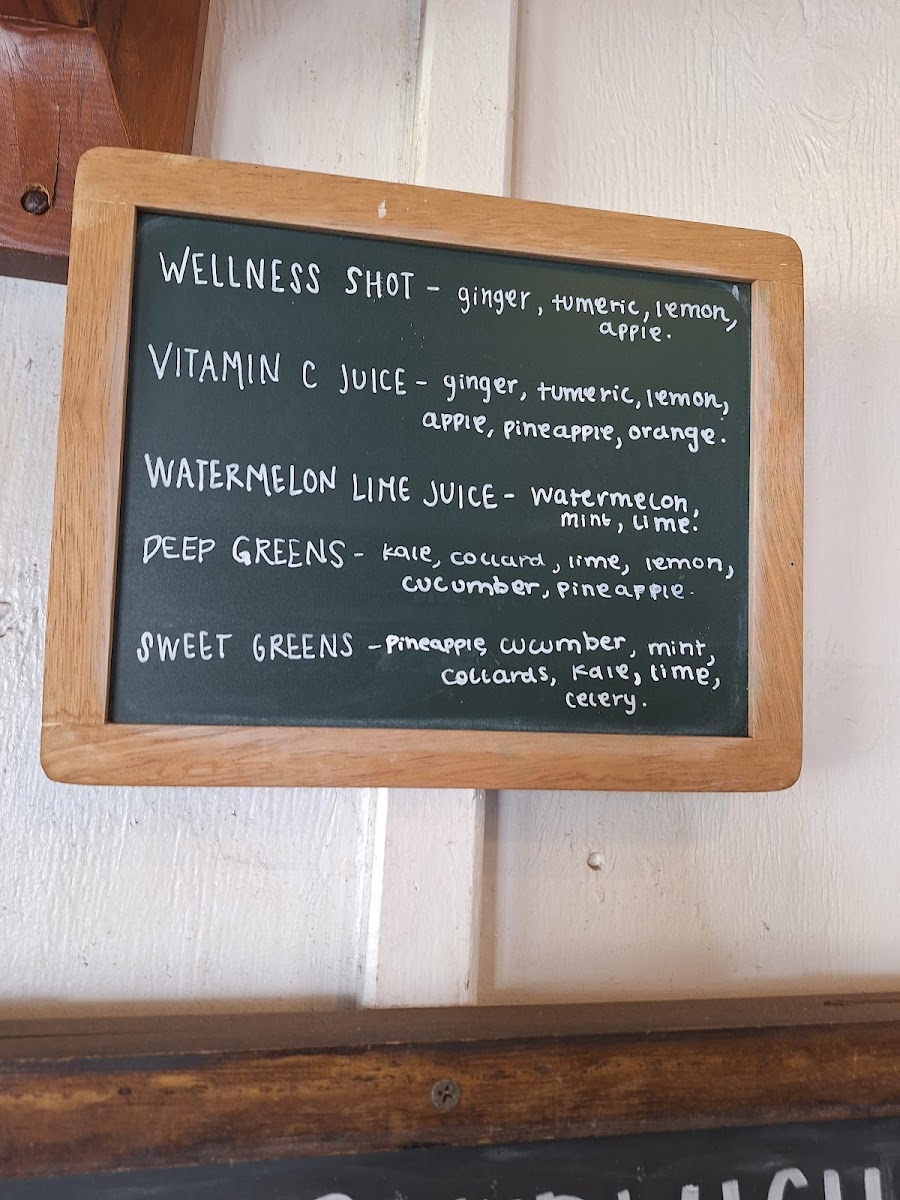 WELLNESS SHOT - ginger, tumeric, lemon,
apple.
VITAMIN C JUICE - ginger, tumeric, lemon,
apple, pineapple, orange.
WATERMELON LIME JUICE - watermelon,
mint, lime.
DEEP GREENS - kale, collard, lime, lemon,
cucumber, pineapple.
SWEET GREENS - Pineapple, cucumber, mint,
collards, kale, lime,
celery.